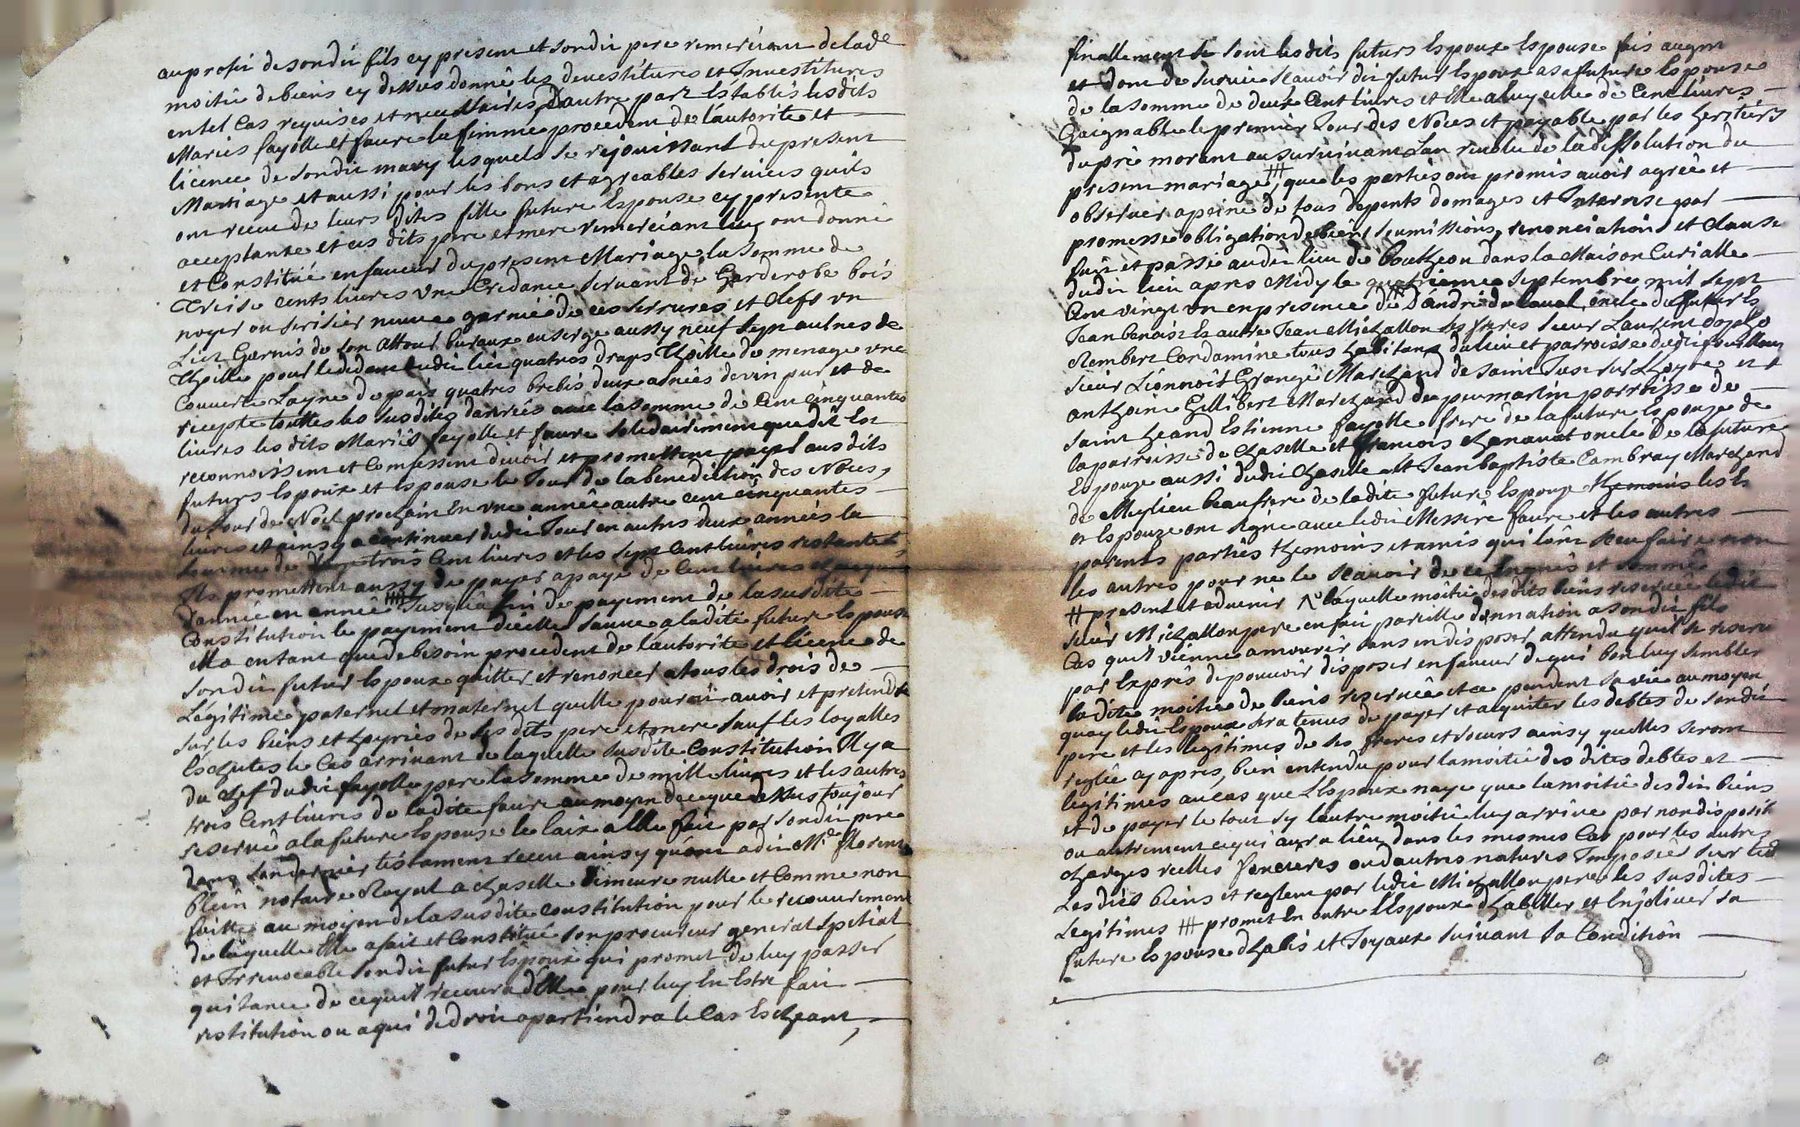 au profit de son dit fils cy present et son dit pere remerciant de lade
moitié de biens cy dessus donné les devestitures et Investitures
en tel Cas requises et necessaires D'autre part Establis lesdits
Mariés fayolle et faure la femme procedent de l'autorité et
licence de son dit mary lesquels se rejouissant du present
Mariage et aussi pour les bons et agreables services quils
ont receu de leurs dites fille future Espouse cy presente
acceptante et ces dits pere et mere remerciant luy ont donné
et Constitué en faveur du present Mariage la somme de
Treise cents livres une Credance servant de Garderobe bois
noyer ou serisier neuve garnie de ces serrures et clefs un
Lict Garnis de son Attour bureaux en serge aussy neuf sept aulnes de
Thoille pour le dedans dudit lict quatres draps Thoille de menage une
Couverte Layne de pais quatres brebis deux asnées de vin pur et de
recepte touttes les susdites danrées avec la somme de Cent cinquantes
livres lesdits Mariés fayolle et faure solidairement que dit Est
reconnoissent et Confessent devoir et promettent payer ausdits
futurs Espoux et Espouse le Jour de la benediction des Noces,
du Jour de Noel prochain En une année autre cent cinquantes
livres et ainsy a continuer dudit Jour en autres deux années la
somme de trois Cent livres et les sept Cent livres restantes
Ils promettent aussy de payer a paye de Cent livres chaque
d'année en année Jusqu'a fin de payement de la susdite
Constitution le payement d'icelle sauve a ladite future Espouse
Ma en tant que de besoin procedent de l'autorité et licence de
son dit futur Espoux quitter et renoncer a tous les drois de
Légitime paternel et maternel quelle pourroit avoir et pretendre
sur les biens et hoyries de ses dits pere et mere sauf les loyalles
Eschutes le Cas arrivant de laquelle susdite Constitution Il y a
du chef dudit fayolle pere la somme de mille livres et les autres
trois Cent livres de ladite faure au moyen de ce que dessus toujour
reservé a la future Espouse le laix a elle fait par son dit pere
dans son dernier testament receu ainsy quont a dit Me florent
blein notaire Royal a chaselle dimeure nulle et Comme non
faitte au moyen de la susdite constitution pour le recouvrement
de laquelle Elle a fait et Constitué son procureur general Spetial
et Irrevocable son dit futur Espoux qui promet de luy passer
quitance de ce quil recevra d'Elle pour luy En Estre fait
restitution ou a qui de droit apartiendra le Cas Escheant,
finallement se sont lesdits futurs Espoux Espouse fais augm
et dont de survie scavoir dit futur Espoux a sa future Espouse
de la somme de deux Cent livres et Elle a luy celle de Cent livres
Gaignable le premier Jour des Noces et payable par les heritiers
du pré morant au survivant Lan revolu de la dissolution du
present mariage, que les parties ont promis avoir agréé et
observer a peine de tous depents domages et Interest par
promesse obligation de biens soumissions, renonciations et clause
fait et passé audit lieu de bouthéon dans la Maison Curialle
dudit lieu apres Midy le quatrieme septembre mil sept
Cent vingt un en presence de Sr André du laval oncle du futur Es
Jean benoist et autre Jean Michallon ses freres sieur Laurent
Rembert Cordamine tous habitant du lieu et parroisse dudit
sieur Lionnoit Grangé Marchand de Saint Just sur Loyre et
anthoine Gillibert Marchand de peumartin parroisse de
Saint heand Estienne fayolle frere de la future Espouze de
la parroisse de chaselle et francois chenavat oncle de la future
Espouze aussi dudit chaselle et Jean baptiste Cambray Marchand
de Meylieu beaufrere de ladite future Espouze themoins les Es
et Espouze ont signé avec ledit Messire faure et les autres
parents parties themoins et amis qui l'ont sceu faire non
les autres pour ne le scavoir de ce Enquis et sommé
# present et advenir laquelle moitié desdits biens reservée ledit
sieur Michallon pere en fait pareille donnation a son dit fils
Cas quil vienne a mourir sans en disposer attendu quil se reserve
par Exprés de pouvoir disposer en faveur de qui bon luy sembler
ladite moitié de biens reservée et ce pendent sa vie au moyen
quoy ledit Espoux sera tenus de payer et acquiter les debtes de son dit
pere et les legitimes de ses freres et soeurs ainsy quelles seront
reglée cy apres, bien entendu pour la moitié des dites debtes et
legitimes au cas que l'Espoux n'aye que la moitié desdits biens
et de payer le tout sy lautre moitié luy arrive par non disposit
ou autrement ce qui aura lieu dans les mesmes Cas pour les autres
charges reelles foncieres ou d'autres natures Imposées sur les
Lesdits biens et reglent par ledit Michallon pere les susdites
Legitimes # promet En outre l'Espoux d'habiller et Enjoliver sa
future Espouse d'habis et Joyaux suivant sa Condition